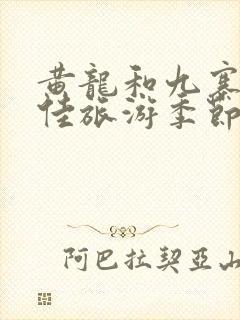 黄龍和九寨
佳旅游季節
阿巴拉契亞山